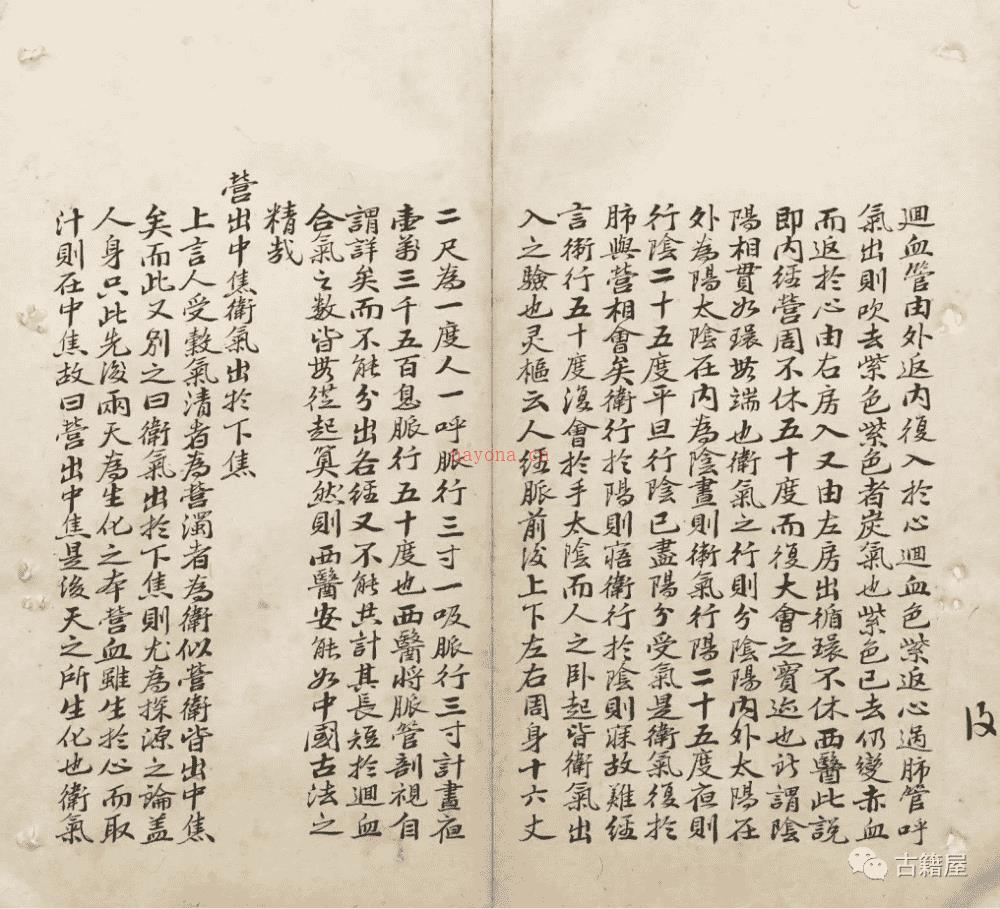 迴血管由外返內復入於心迴血色紫返心過肺管呼
氣出則吹去紫色紫色者炭氣也紫色已去仍變赤血
而返於心由右房入又由左房出循環不休西醫此說
即內經營周不休五十度而復大會之實迹也所謂陰
陽相貫如環無端也衛氣之行則分陰陽內外太陽在
外為陽太陰在內為陰晝則衛氣行陽二十五度夜則
行陰二十五度平旦行陰已盡陽分受氣是衛氣復於
肺與營相會矣衛行於陽則寤衛行於陰則寐故難經
言衛行五十度復會於手太陰而人之卧起皆衛氣出
入之驗也灵樞云人經脈前後上下左右周身十六丈
二尺為一度人一呼脈行三寸一吸脈行三寸計晝夜
壹萬三千五百息脈行五十度也西醫將脈管剖視自
謂詳矣而不能分出各經又不能共計其長短於迴血
合氣之數皆無從起算然則西醫安能如中國古法之
精哉
營出中焦衛氣出於下焦
上言人受穀氣清者為營濁者為衛似營衛皆出中焦
矣而此又別之曰衛氣出於下焦則尤為探源之論蓋
人身只此先後兩天為生化之本營血雖生於心而取
汁則在中焦故曰營出中焦是後天之所生化也衛氣
nayona.cn
古籍屋